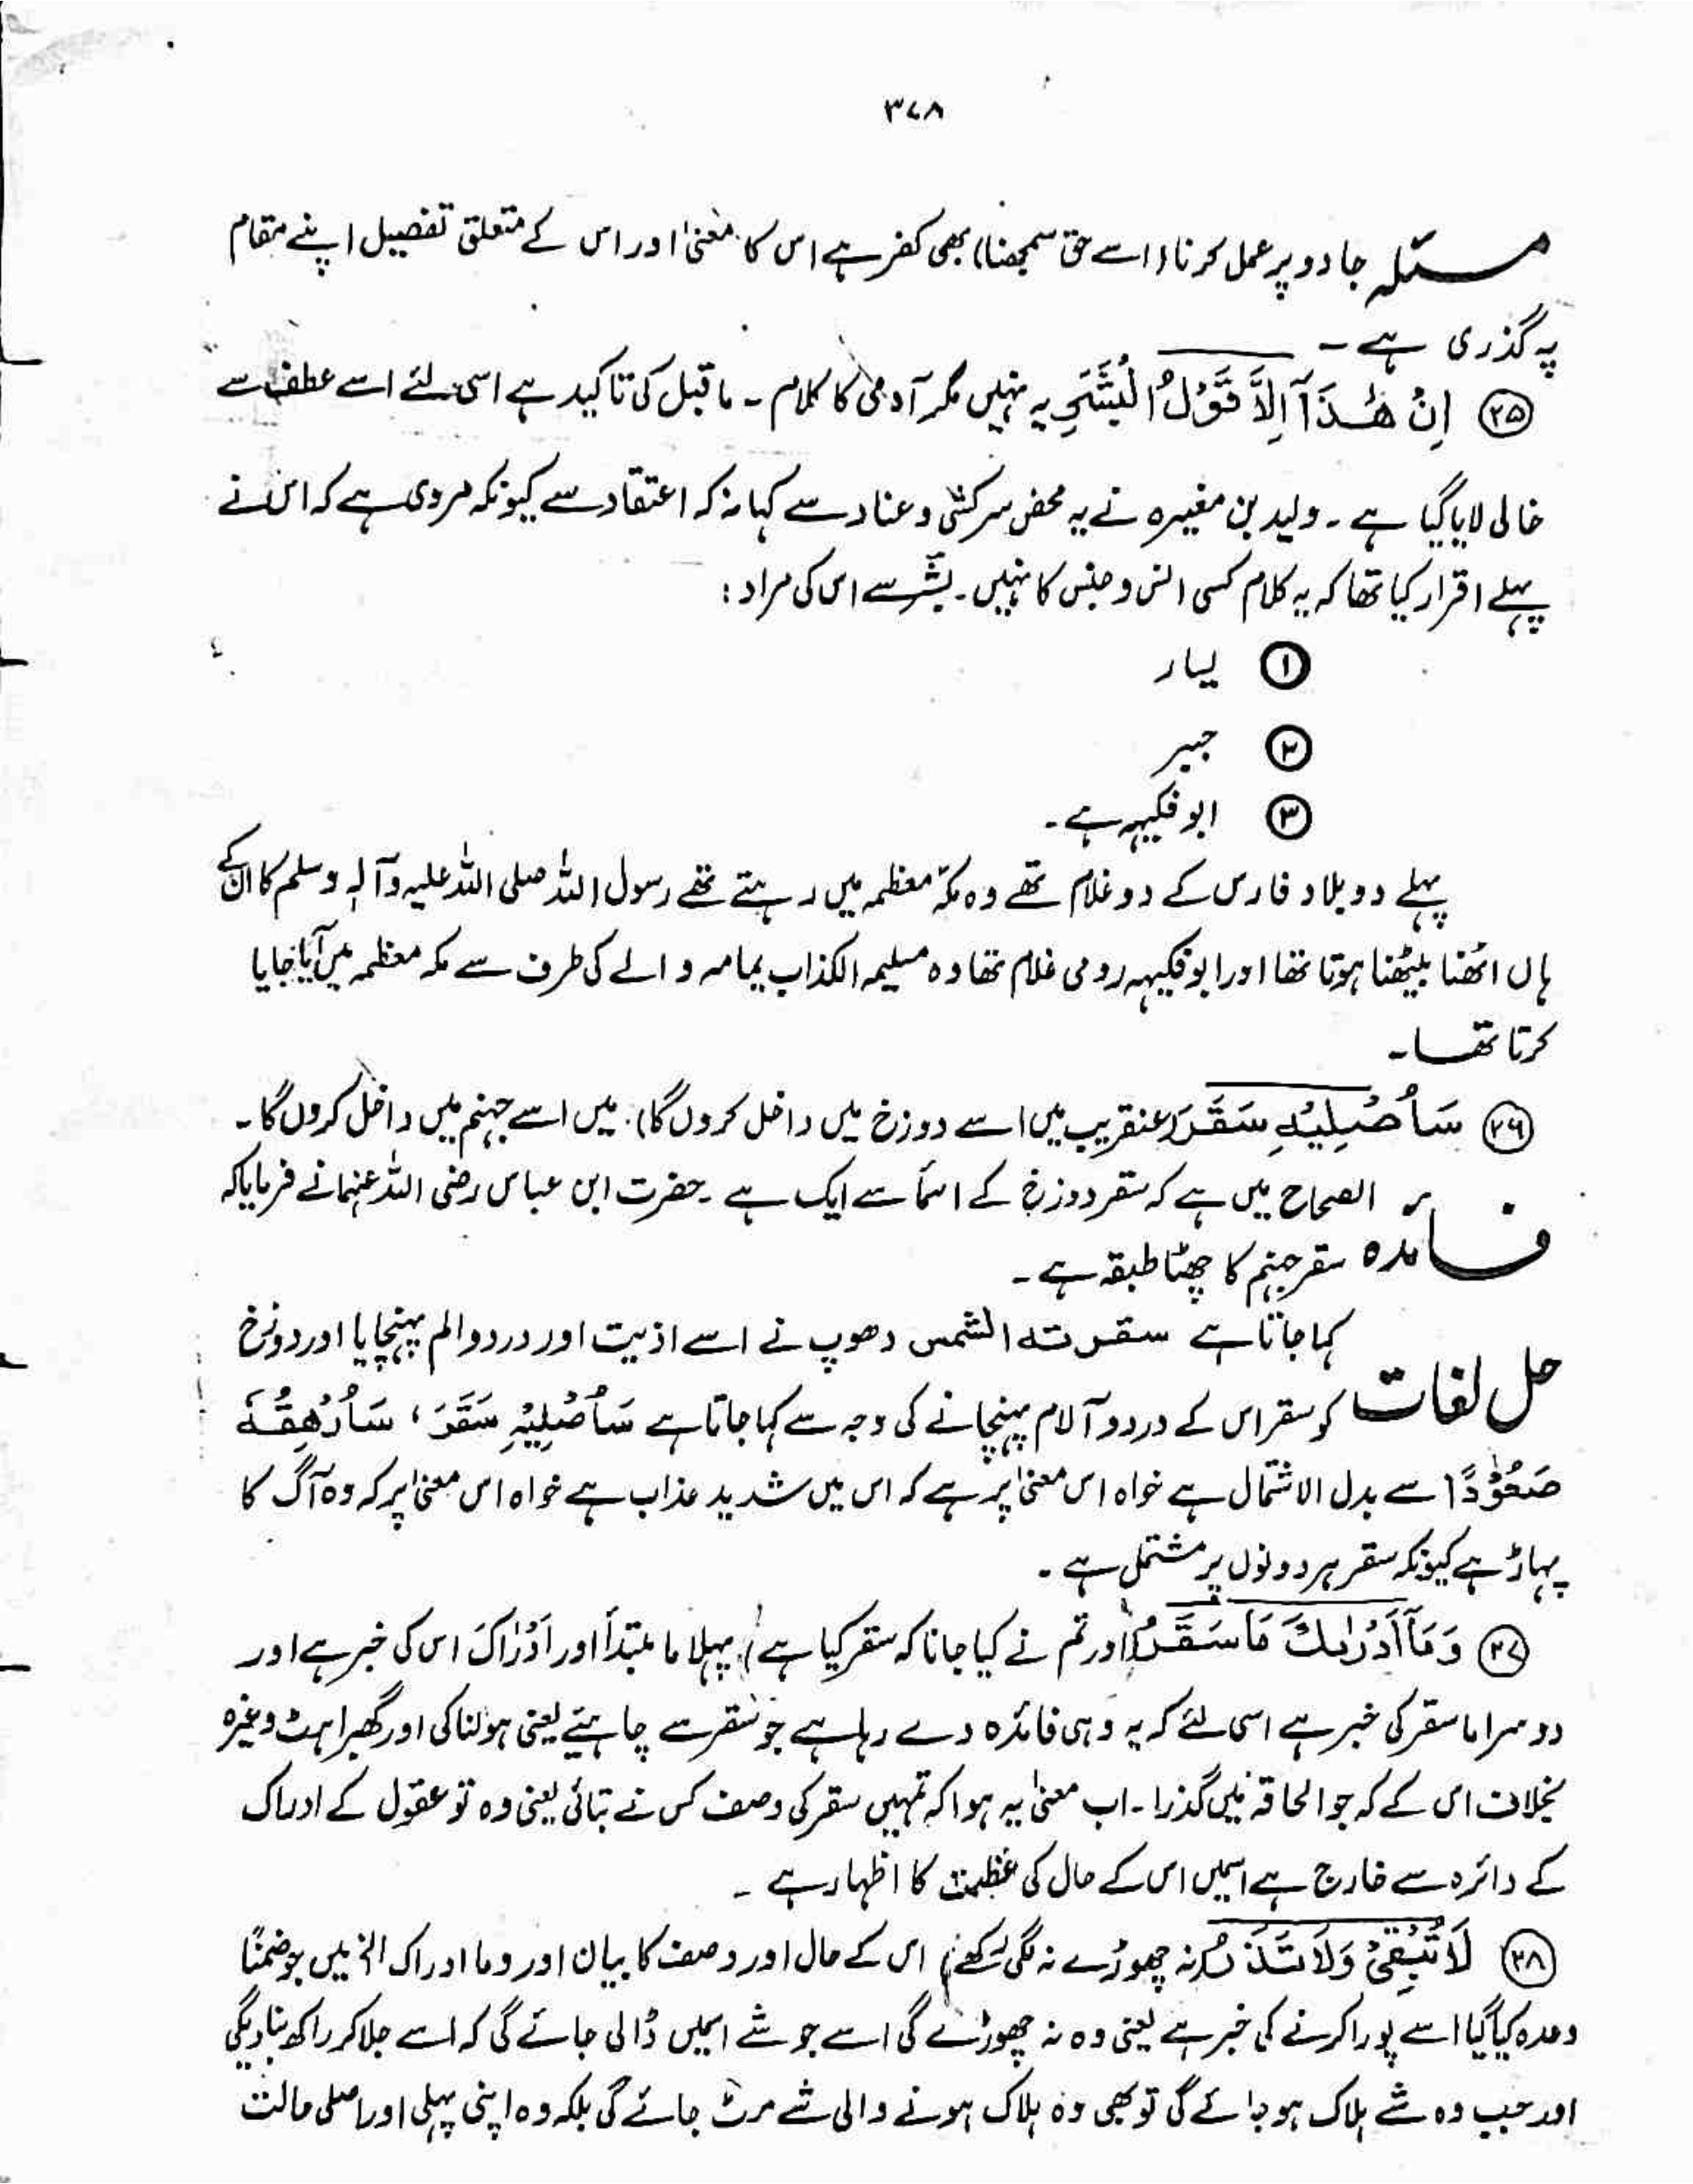 ۳۷۸
مسئلہ جادو پر عمل کرنا (اسے حق سمجھنا) بھی کفر ہے اس کا معنیٰ اور اس کے متعلق تفصیل اپنے مقام
پہ گذری ہے ۔
۲۵ اِنْ هٰذَآ اِلَّا قَوْلُ الْبَشَرِ یہ نہیں مگر آدمی کا کلام ۔ ماقبل کی تاکید ہے اسی لئے اسے عطف سے
خالی لایا گیا ہے ۔ ولید بن مغیرہ نے یہ محض سرکشی و عناد سے کہا نہ کہ اعتقاد سے کیونکہ مروی ہے کہ اس نے
پہلے اقرار کیا تھا کہ یہ کلام کسی انس و جنس کا نہیں ۔ بشر سے اس کی مراد :
۱ یسار
۲ جبیر
۳ ابو فکیہہ ہے ۔
پہلے دو بلاد فارس کے دو غلام تھے وہ مکہ معظمہ میں رہتے تھے رسول اللہ صلی اللہ علیہ وآلہٖ وسلم کا ان کے
ہاں اٹھنا بیٹھنا ہوتا تھا اور ابو فکیہہ رومی غلام تھا وہ مسلیمہ الکذاب یمامہ والے کی طرف سے مکہ معظمہ میں آیا جایا
کرتا تھا ۔
۲۶ سَاُصْلِیْهِ سَقَرَ (عنقریب میں اسے دوزخ میں داخل کروں گا) میں اسے جہنم میں داخل کروں گا ۔
فائدہ الصحاح میں ہے کہ سقر دوزخ کے اسمأ سے ایک ہے ۔ حضرت ابن عباس رضی اللہ عنہما نے فرمایا کہ
سقر جہنم کا چھٹا طبقہ ہے ۔
حل لغات کہا جاتا ہے سقرته الشمس دھوپ نے اسے اذیت اور درد و الم پہنچایا اور دوزخ
کو سقر اس کے درد و آلام پہنچانے کی وجہ سے کہا جاتا ہے سَاُصْلِیْهِ سَقَرَ، سَاُرْهِقُهٗ
صَعُوْدًا سے بدل الاشتمال ہے خواہ اس معنیٰ پر ہے کہ اس میں شدید عذاب ہے خواہ اس معنیٰ پر کہ وہ آگ کا
پہاڑ ہے کیونکہ سقر ہر دونوں پر مشتمل ہے ۔
۲۷ وَمَآ اَدْرٰىكَ مَا سَقَرُ (اور تم نے کیا جانا کہ سقر کیا ہے) پہلا ما مبتدأ اور اَدْرَاكَ اس کی خبر ہے اور
دوسرا ما سقر کی خبر ہے اسی لئے کہ یہ وہی فائدہ دے رہا ہے جو سقر سے چاہیئے یعنی ہولناکی اور گھبراہٹ وغیرہ
بخلاف اس کے کہ جو الحاقہ میں گذرا ۔ اب معنیٰ یہ ہوا کہ تمہیں سقر کی وصف کس نے بتائی یعنی وہ تو عقول کے ادراک
کے دائرہ سے خارج ہے اسمیں اس کے حال کی عظمت کا اظہار ہے ۔
۲۸ لَا تُبْقِیْ وَلَا تَذَرُ (نہ چھوڑے نہ لگی رکھے) اس کے حال اور وصف کا بیان اور وما ادراک الخ میں جو ضمنًا
وعدہ کیا گیا اسے پورا کرنے کی خبر ہے یعنی وہ نہ چھوڑے گی اسے جو شے اسمیں ڈالی جائے گی کہ اسے جلا کر راکھ بنا دیگی
اور جب وہ شے ہلاک ہو جائے گی تو بھی وہ ہلاک ہونے والی شے مرٹ جائے گی بلکہ وہ اپنی پہلی اور اصلی حالت